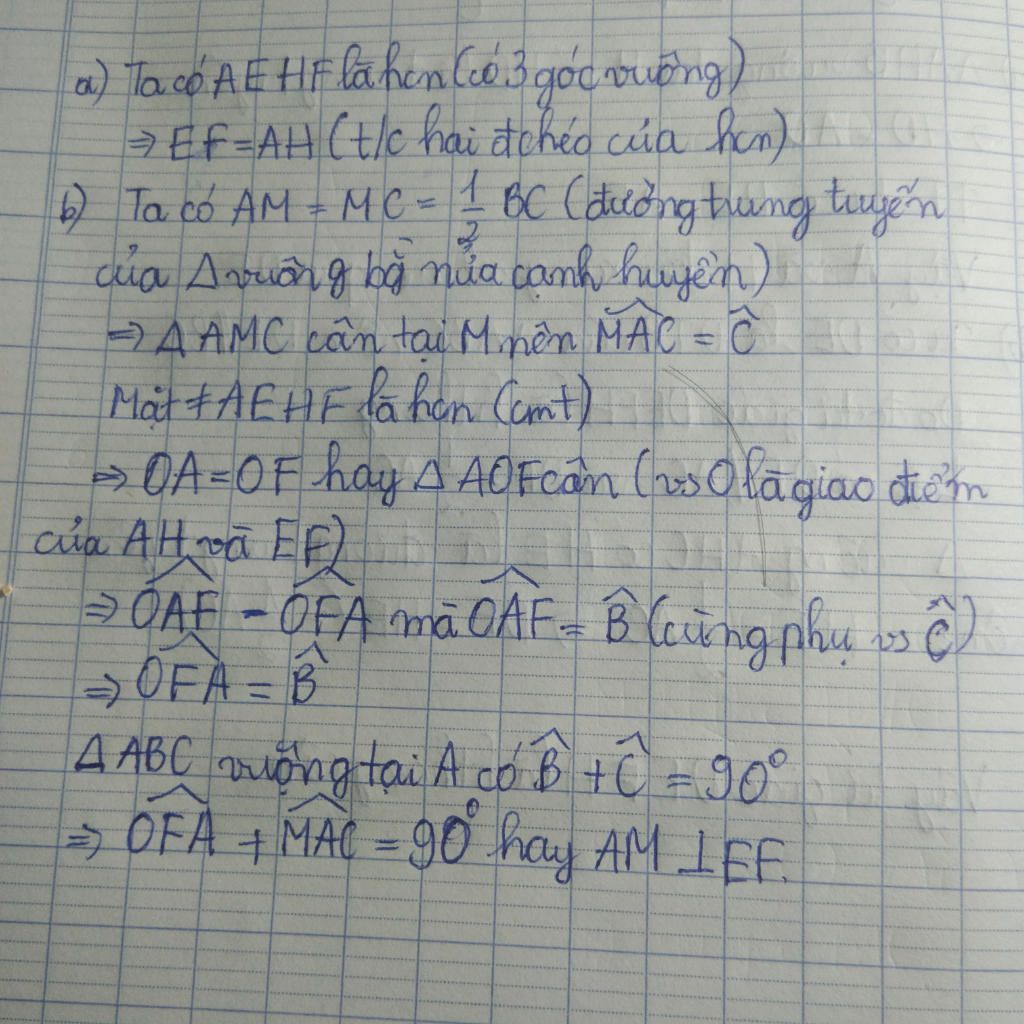 a) Ta có AEHF là hcn (có 3 góc vuông)
⇒ EF = AH (t/c hai đchéo của hcn)
b) Ta có AM = MC = 1/2 BC (đường trung tuyến
của Δ vuông bằ nửa cạnh huyền)
⇒ Δ AMC cân tại M nên \widehat{MAC} = \widehat{C}
Mặt ≠ AEHF là hcn (cmt)
⇒ OA = OF hay Δ AOF cân (vs O là giao điểm
của AH và EF)
⇒ \widehat{OAF} - \widehat{OFA} mà \widehat{OAF} = \widehat{B} (cùng phụ vs \widehat{C})
⇒ \widehat{OFA} = \widehat{B}
Δ ABC vuông tại A có \widehat{B} + \widehat{C} = 90°
⇒ \widehat{OFA} + \widehat{MAC} = 90° hay AM ⊥ EF.